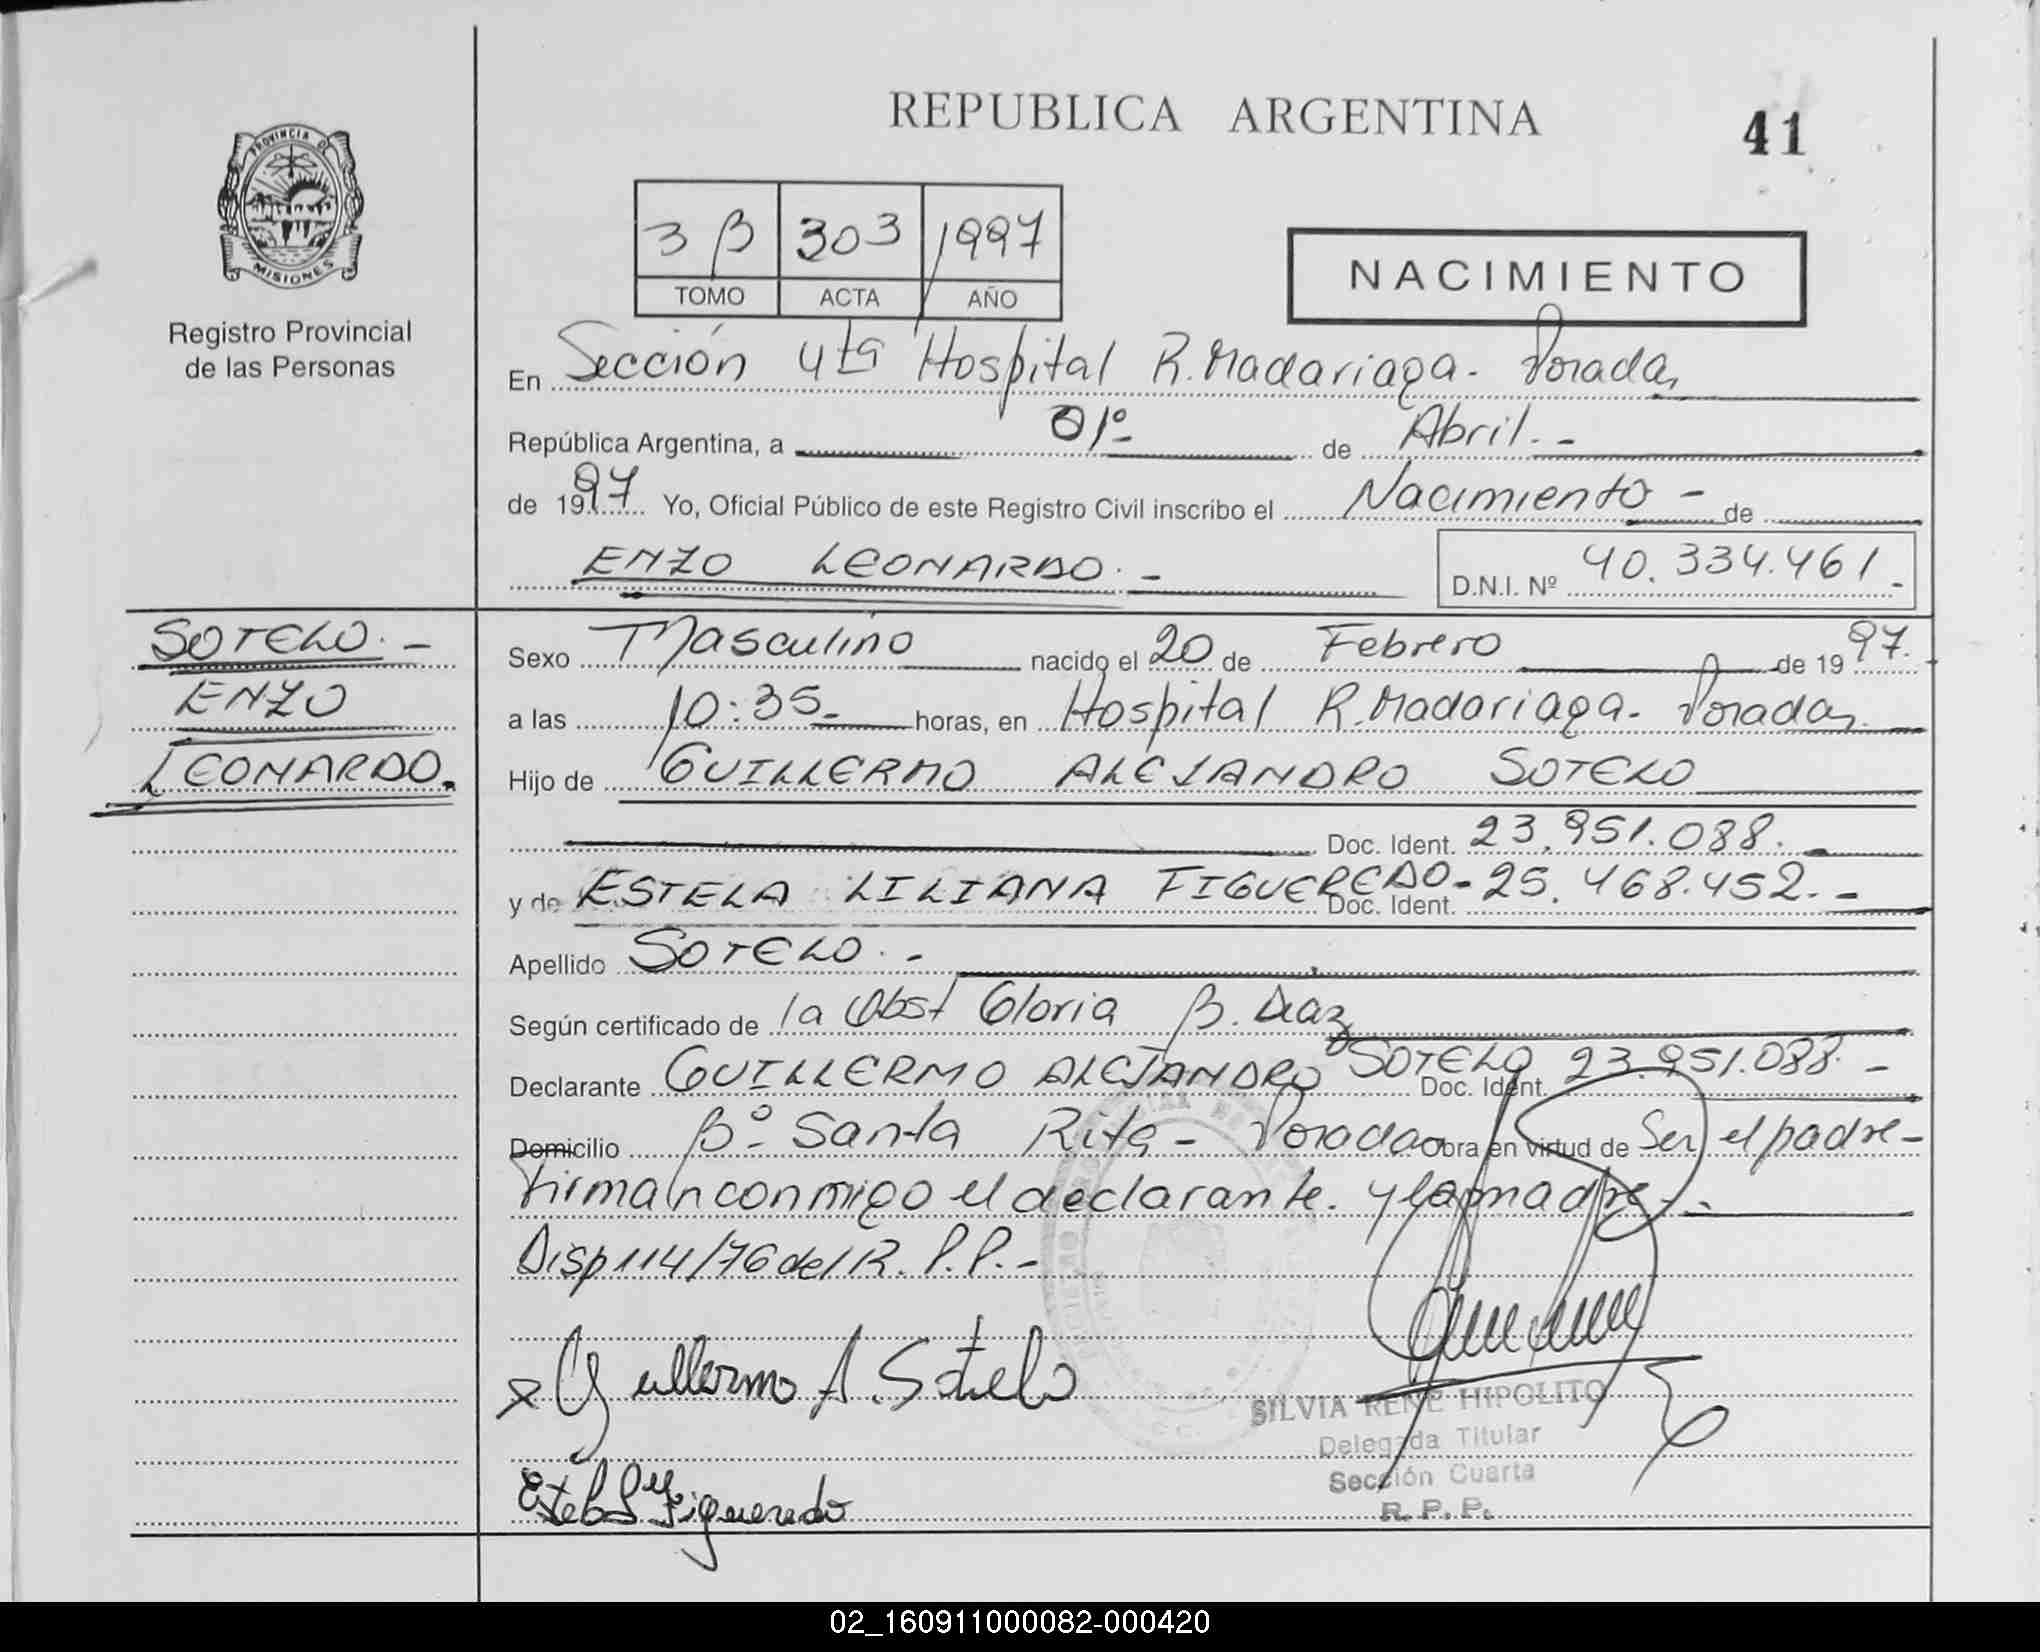 REPUBLICA ARGENTINA
41
PROVINCIA DE
MISIONES
Registro Provincial
de las Personas
3 B 303 1997
TOMO ACTA AÑO
NACIMIENTO
En Sección 4ta Hospital R. Madariaga - Posadas
República Argentina, a 01º de Abril.-
de 1997 Yo, Oficial Público de este Registro Civil inscribo el Nacimiento - de
ENZO LEONARDO.-
D.N.I. Nº 40.334.461.-
SOTELO.-
ENZO
LEONARDO.
Sexo Masculino nacido el 20 de Febrero de 1997.
a las 10:35 horas, en Hospital R. Madariaga - Posadas
Hijo de GUILLERMO ALEJANDRO SOTELO
Doc. Ident. 23.951.088.
y de ESTELA LILIANA FIGUEREDO - Doc. Ident. 25.468.452.-
Apellido SOTELO.-
Según certificado de la Obst Gloria B. Diaz
Declarante GUILLERMO ALEJANDRO SOTELO Doc. Ident. 23.951.088.-
Domicilio Bº Santa Rita - Posadas Obra en virtud de Ser el padre -
Firman conmigo el declarante y la madre -
Disp 114/76 del R.P.P.-
x Guillermo A. Sotelo
Figueredo
SILVIA RENE HIPOLITO
Delegada Titular
Sección Cuarta
R. P. P.
02_160911000082-000420